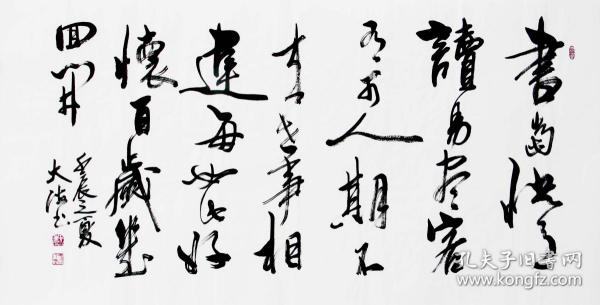 書當快意
讀易盡客
有可人期不
来世事相
違每如此好
懷百歲幾
回開
壬辰之夏
大海书
孔夫子旧书网
book.kongfz.com